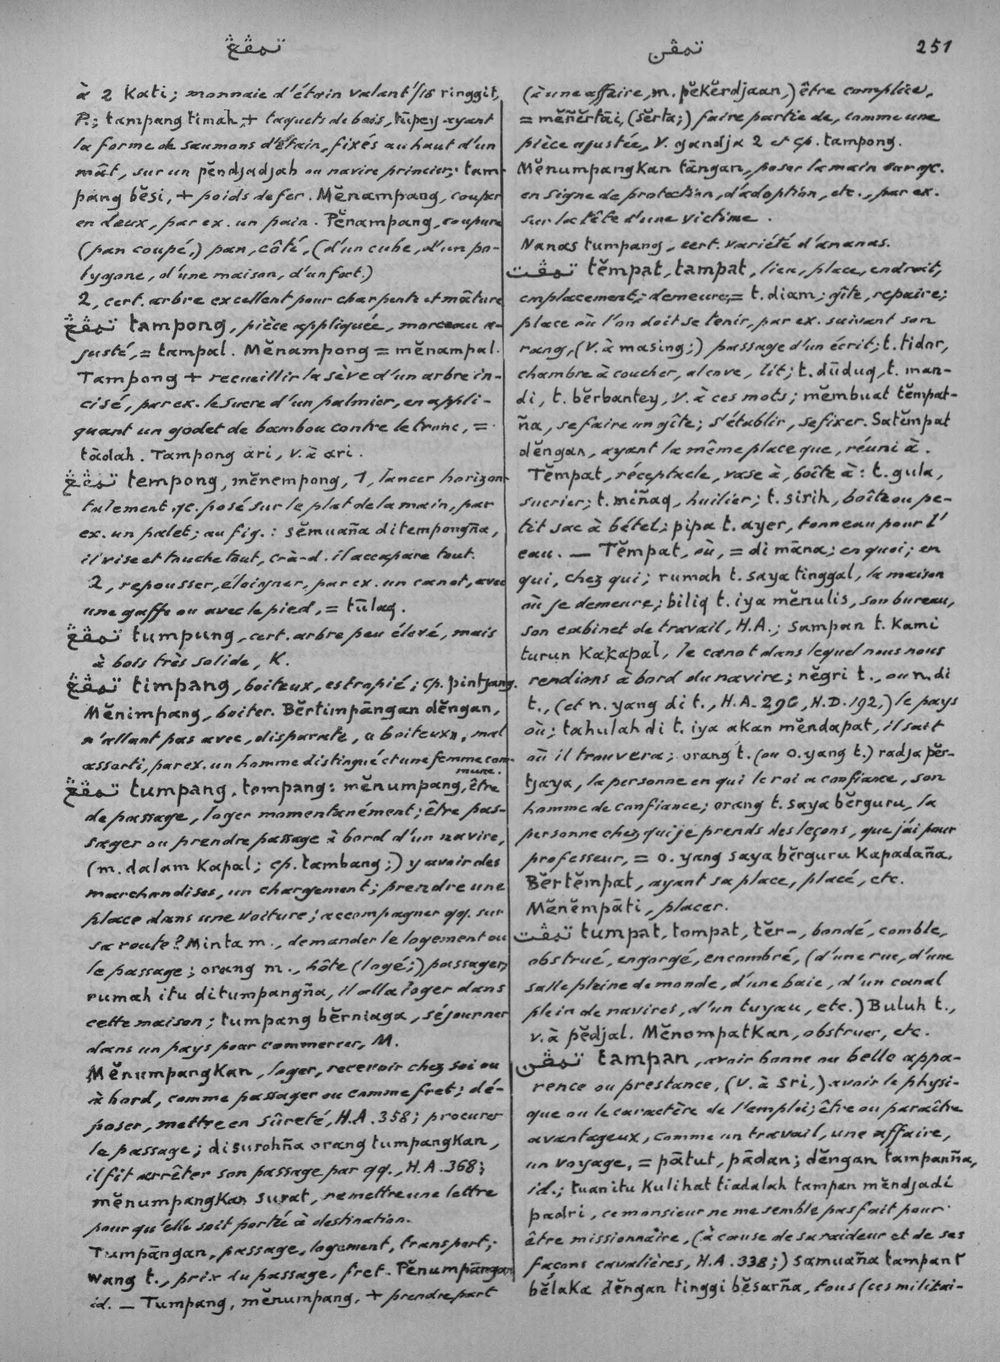 تمڤڠ
تمڤن
251
à 2 Kati; monnaie d'étain valant 1/18 ringgit,
P.; tampang timah, + taquets de bois, tūpey ayant
la forme de saumons d'étain, fixés au haut d'un
mât, sur un pĕndjadjah ou navire princier; tam-
pang bĕsi, + poids de fer. Mĕnampang, couper
en deux, par ex. un pain. Pĕnampang, coupure
(pan coupé,) pan, côté, (d'un cube, d'un po-
lygone, d'une maison, d'un fort.)
2, cert. arbre excellent pour charpente et mâture
تمڤڠ tampong, pièce appliquée, morceau a-
justé, = tampal. Mĕnampong = mĕnampal.
Tampong + recueillir la sève d'un arbre in-
cisé, par ex. le sucre d'un palmier, en appli-
quant un godet de bambou contre le tronc, =
tādah. Tampong ari, v. à ari.
تمڤڠ tempong, mĕnempong, 1, lancer horizon-
talement qc. posé sur le plat de la main, par
ex. un palet; au fig.: sĕmuaña ditempongña,
il vise et touche tout, c-à-d. il accapare tout.
2, repousser, éloigner, par ex. un canot, avec
une gaffe ou avec le pied, = tūlaq.
تمڤڠ tumpung, cert. arbre peu élevé, mais
à bois très solide, K.
تمڤڠ timpang, boiteux, estropié; cp. pintjang.
Mĕnimpang, boiter. Bĕrtimpāngan dĕngan,
n'allant pas avec, disparate, "boiteux", mal
assorti, par ex. un homme distingué et une femme com-
mune.
تمڤڠ tumpang, tompang: mĕnumpang, être
de passage, loger momentanément; être pas-
sager ou prendre passage à bord d'un navire,
(m. dalam Kapal; cp. tambang;) y avoir des
marchandises, un chargement; prendre une
place dans une voiture; accompagner qq. sur
sa route? Minta m., demander le logement ou
le passage; orang m., hôte (logé;) passager;
rumah itu ditumpangña, il alla loger dans
cette maison; tumpang bĕrniaga, séjourner
dans un pays pour commercer, M.
Mĕnumpangkan, loger, recevoir chez soi ou
à bord, comme passager ou comme fret; dé-
poser, mettre en sûreté, H.A. 358; procurer
le passage; disurohña orang tumpangkan,
il fit arrêter son passage par qq., H.A. 368;
mĕnumpangkan surat, remettre une lettre
pour qu'elle soit portée à destination.
Tumpāngan, passage, logement, transport;
wang t., prix du passage, fret. Pĕnumpāngan
id. — Tumpang, mĕnumpang, + prendre part
(à une affaire, m. pĕkĕrdjaan,) être complice,
= mĕñĕrtāi, (sĕrta;) faire partie de, comme une
pièce ajustée, v. gandja 2 et cp. tampong.
Mĕnumpangkan tāngan, poser la main sur qc.
en signe de protection, d'adoption, etc., par ex.
sur la tête d'une victime.
Nanas tumpang, cert. variété d'ananas.
تمڤت tĕmpat, tampat, lieu, place, endroit,
emplacement; demeure, = t. diam; gîte, repaire;
place où l'on doit se tenir, par ex. suivant son
rang, (v. à masing;) passage d'un écrit; t. tidor,
chambre à coucher, alcove, lit; t. dūduq, t. man-
di, t. bĕrbantey, v. à ces mots; mĕmbuat tĕmpat-
ña, se faire un gîte; s'établir, se fixer. Satĕmpat
dĕngan, ayant la même place que, réuni à.
Tĕmpat, réceptacle, vase à, boîte à: t. gula,
sucrier; t. miñaq, huilier; t. sirih, boîte ou pe-
tit sac à bétel; pipa t. ayer, tonneau pour l'
eau. — Tĕmpat, où, = di māna; en quoi; en
qui, chez qui; rumah t. saya tinggal, la maison
où je demeure; biliq t. iya mĕnulis, son bureau,
son cabinet de travail, H.A.; sampan t. Kami
turun Kakapal, le canot dans lequel nous nous
rendions à bord du navire; nĕgri t., ou n. di
t., (et n. yang di t., H.A. 296, H.D. 192,) le pays
où; tahulah di t. iya akan mĕndapat, il sait
où il trouvera; orang t. (ou o. yang t.) radja pĕr-
tjaya, la personne en qui le roi a confiance, son
homme de confiance; orang t. saya bĕrguru, la
personne chez qui je prends des leçons, que j'ai pour
professeur, = o. yang saya bĕrguru Kapadaña.
Bĕrtĕmpat, ayant sa place, placé, etc.
Mĕnĕmpāti, placer.
تمڤت tumpat, tompat, tĕr-, bondé, comble,
obstrué, engorgé, encombré, (d'une rue, d'une
salle pleine de monde, d'une baie, d'un canal
plein de navires, d'un tuyau, etc.) Buluh t.,
v. à pĕdjal. Mĕnompatkan, obstruer, etc.
تمڤن tampan, avoir bonne ou belle appa-
rence ou prestance, (v. à sri,) avoir le physi-
que ou le caractère de l'emploi; être ou paraître
avantageux, comme un travail, une affaire,
un voyage, = pātut, pādan; dĕngan tampanña,
id.; tuan itu Kulihat tiadalah tampan mĕndjadi
padri, ce monsieur ne me semble pas fait pour
être missionnaire, (à cause de sa raideur et de ses
façons cavalières, H.A. 338;) samuaña tampan t
bĕlaka dĕngan tinggi bĕsarña, tous (ces militai-